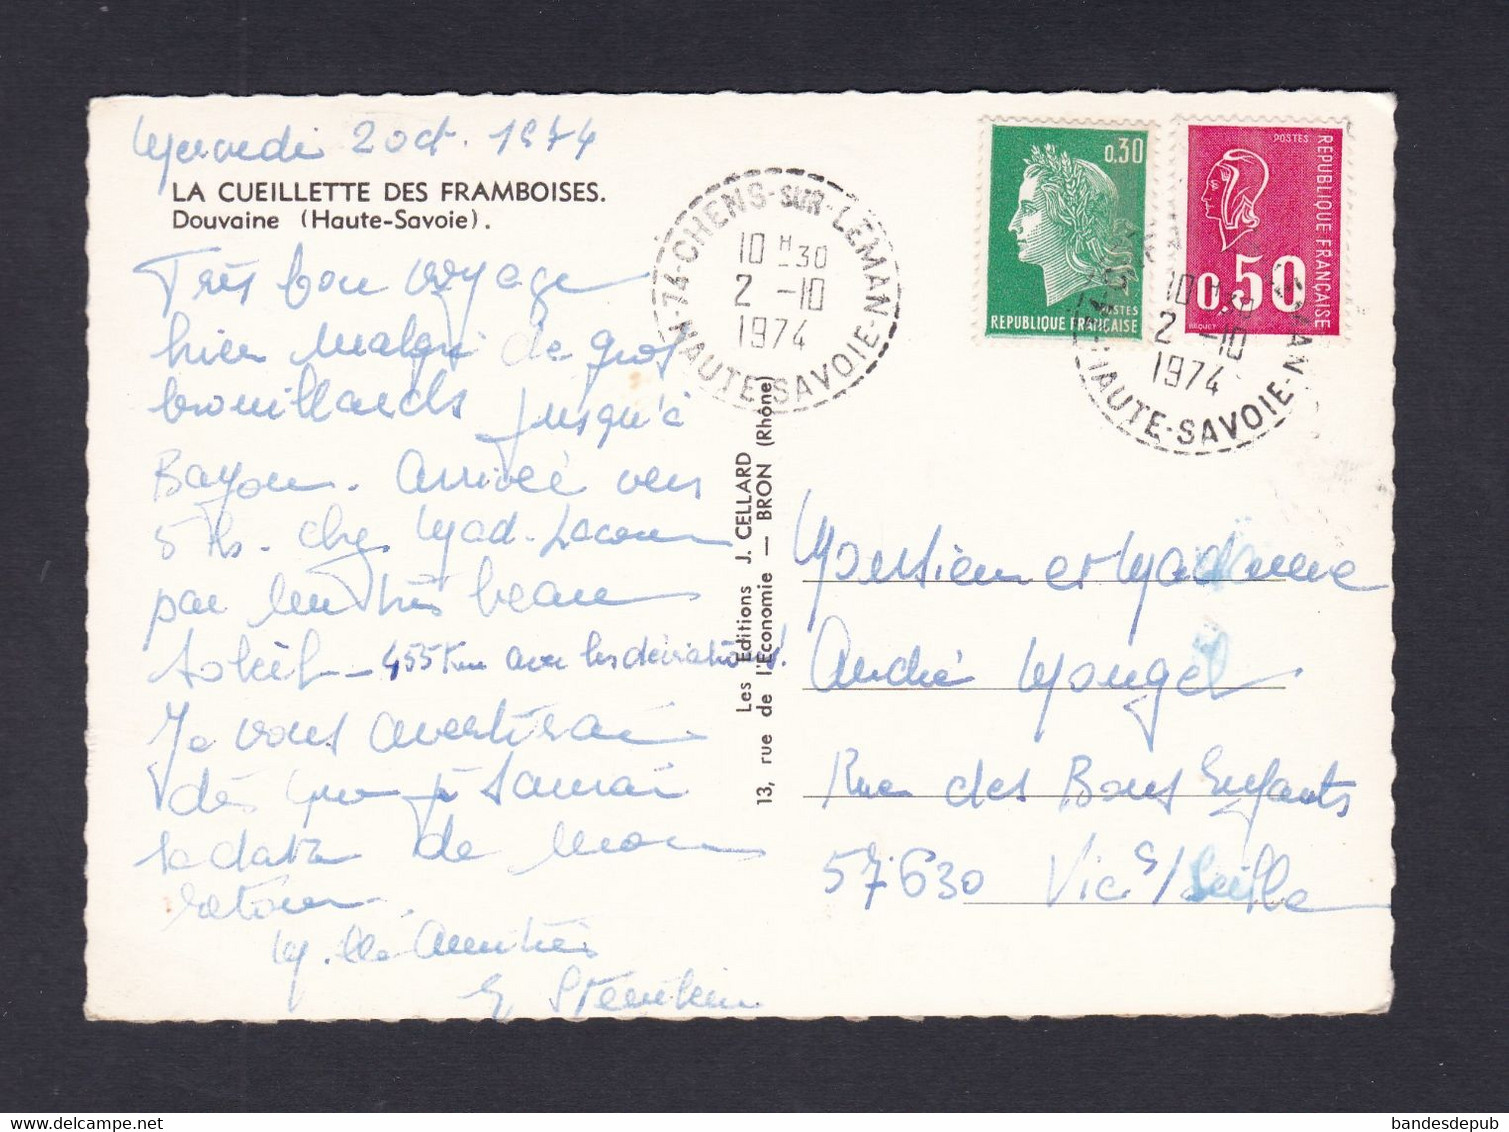 Mercredi 2 oct. 1974
LA CUEILLETTE DES FRAMBOISES.
Douvaine (Haute-Savoie).
Très bon voyage
hier malgré de gros
brouillards jusqu'à
Bayon. Arrivée vers
5 hs. chez Mad. Lacour
par un très beau
soleil - 455 Km avec les déviations!
Je vous avertirai
dès que je saurai
la date de mon
retour.
M. lles Amitiés
Les Editions J. CELLARD
13, rue de l'Economie — BRON (Rhône)
74-CHENS-SUR-LEMAN
10 H 30
2 -10
1974
HAUTE-SAVOIE
0,30
POSTES
REPUBLIQUE FRANÇAISE
POSTES
REPUBLIQUE FRANÇAISE
0,50
BEQUET
10 H 30
2 -10
1974
HAUTE-SAVOIE
Monsieur et Madame
André Mougel
Rue des Bons Enfants
57630 Vic s/Seille
bandesdepub